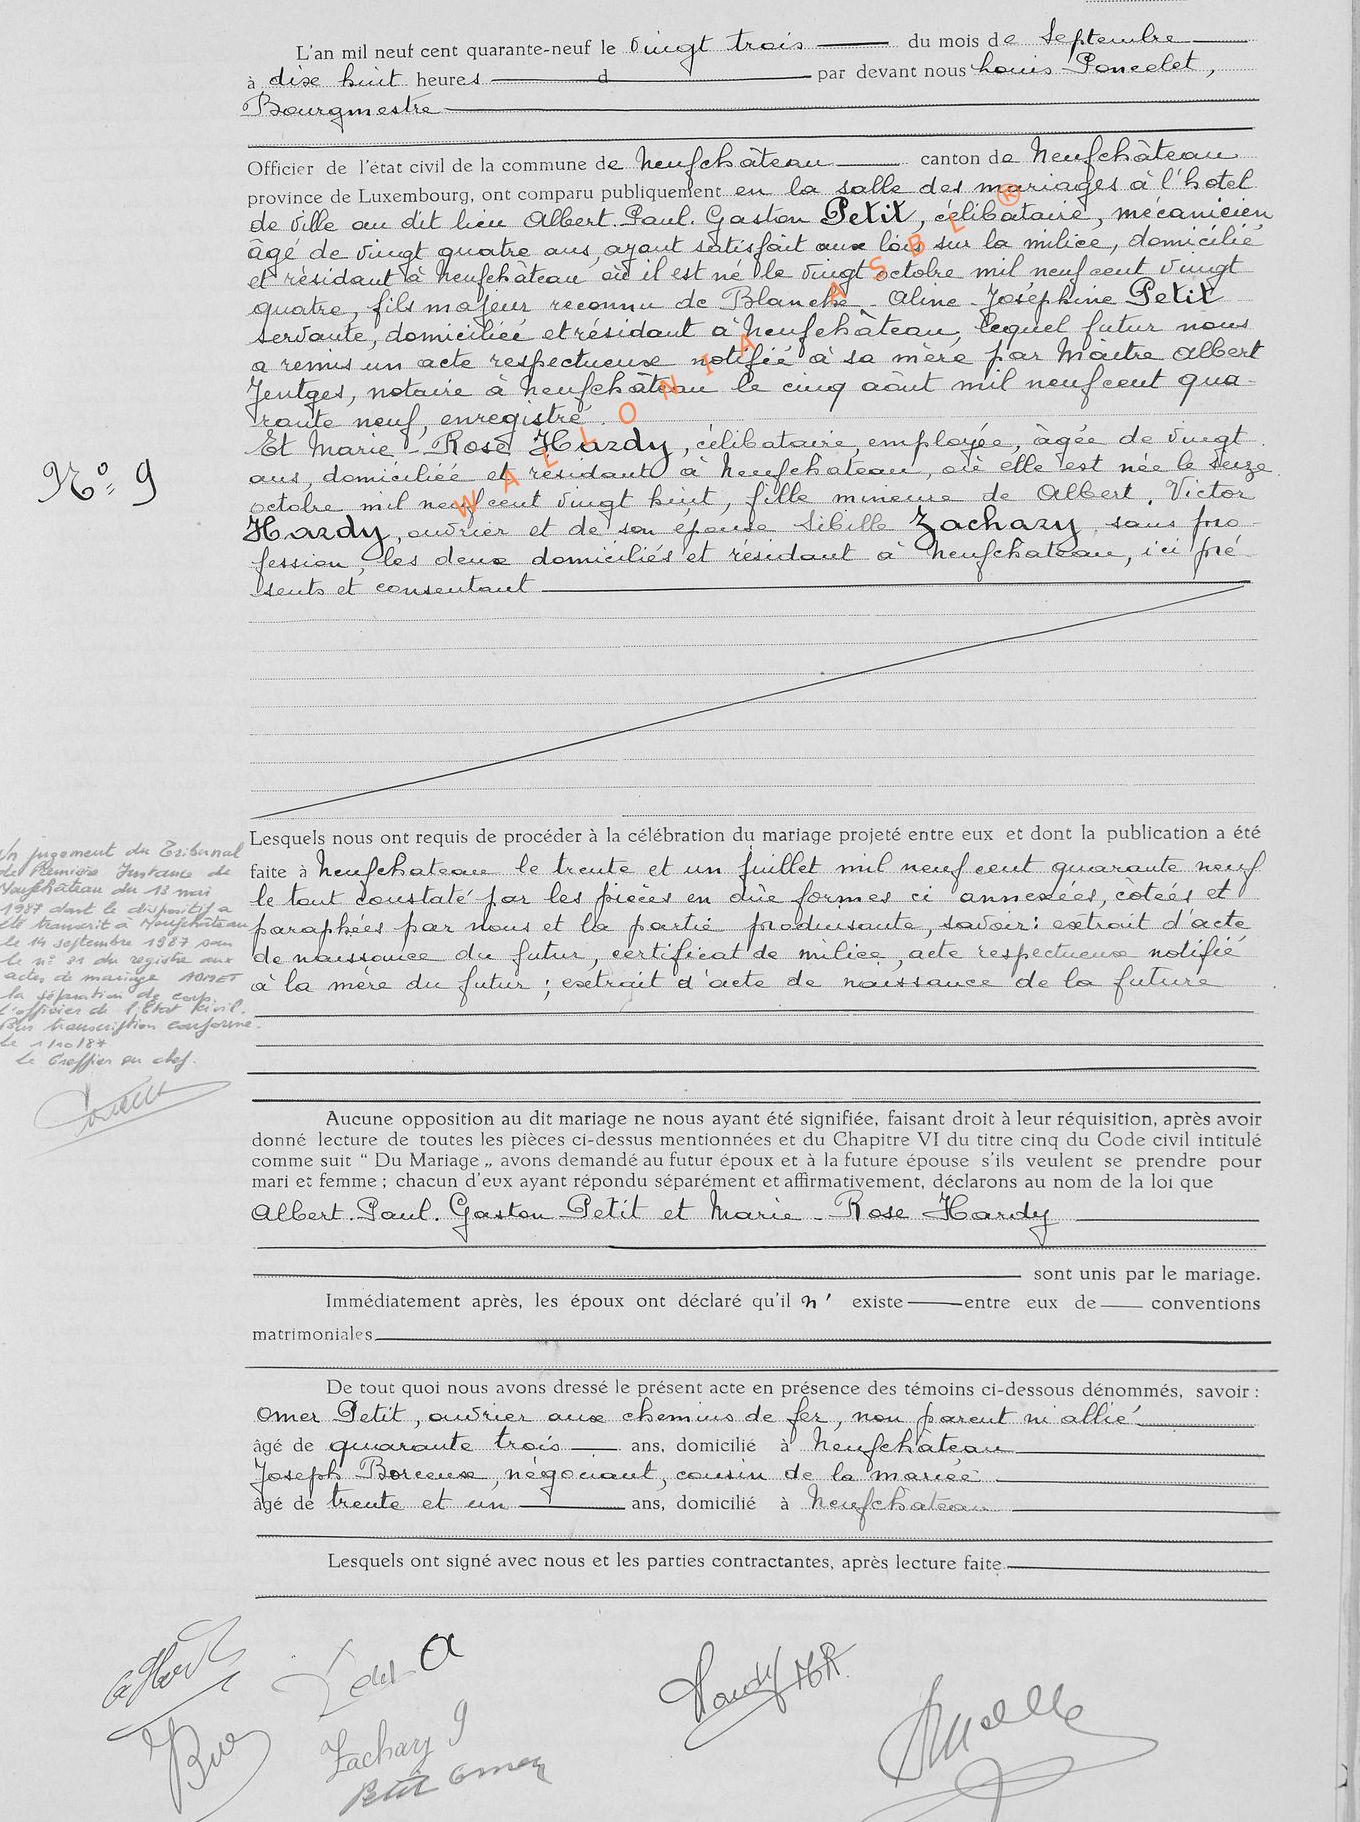 L'an mil neuf cent quarante-neuf le vingt trois du mois de Septembre
à dix huit heures d par devant nous Louis Poncelet,
Bourgmestre
Officier de l'état civil de la commune de Neufchâteau canton de Neufchâteau
province de Luxembourg, ont comparu publiquement en la salle des mariages à l'hotel
de ville au dit lieu Albert. Paul. Gaston Petit, célibataire, mécanicien
âgé de vingt quatre ans, ayant satisfait aux lois sur la milice, domicilié
et résidant à Neufchâteau où il est né le vingt octobre mil neuf cent vingt
quatre, fils majeur reconnu de Blanche - Aline - Joséphine Petit
servante, domiciliée et résidant à Neufchâteau, lequel futur nous
a remis un acte respectueux notifié à sa mère par Maître Albert
Jentges, notaire à Neufchâteau le cinq août mil neuf cent qua-
rante neuf, enregistré.
Et Marie - Rose Hardy, célibataire, employée, âgée de vingt
ans, domiciliée et résidant à Neufchateau, où elle est née le seize
octobre mil neuf cent vingt huit, fille mineure de Albert. Victor
Hardy, ouvrier et de son épouse Sibille Zachary, sans pro
fession, les deux domiciliés et résidant à Neufchateau, ici pré
sents et consentant
N° 9
WALLONIA ASBL ®
Lesquels nous ont requis de procéder à la célébration du mariage projeté entre eux et dont la publication a été
faite à Neufchateau le trente et un juillet mil neuf cent quarante neuf
le tout constaté par les pièces en dûe formes ci annexées, cotées et
paraphées par nous et la partie produisante, savoir: extrait d'acte
de naissance du futur, certificat de milice, acte respectueux notifié
à la mère du futur; extrait d'acte de naissance de la future
Un jugement du Tribunal
de Première Instance de
Neufchâteau du 13 mai
1987 dont le dispositif a
été transcrit à Neufchâteau
le 14 septembre 1987 sous
le n° 21 du registre aux
actes de mariage ADMET
la séparation de corps.
L'officier de l'Etat Civil.
Pour transcription conforme.
Le 1/10/87
Le Greffier en chef.
Aucune opposition au dit mariage ne nous ayant été signifiée, faisant droit à leur réquisition, après avoir
donné lecture de toutes les pièces ci-dessus mentionnées et du Chapitre VI du titre cinq du Code civil intitulé
comme suit “ Du Mariage „ avons demandé au futur époux et à la future épouse s'ils veulent se prendre pour
mari et femme ; chacun d'eux ayant répondu séparément et affirmativement, déclarons au nom de la loi que
Albert. Paul. Gaston Petit et Marie - Rose Hardy
sont unis par le mariage.
Immédiatement après, les époux ont déclaré qu'il n' existe entre eux de conventions
matrimoniales
De tout quoi nous avons dressé le présent acte en présence des témoins ci-dessous dénommés, savoir :
Omer Petit, ouvrier aux chemins de fer, non parent ni allié
âgé de quarante trois ans, domicilié à Neufchâteau
Joseph Borceux, négociant, cousin de la mariée
âgé de trente et un ans, domicilié à Neufchateau
Lesquels ont signé avec nous et les parties contractantes, après lecture faite.
Hardy MR.
Zachary
Petit Omer